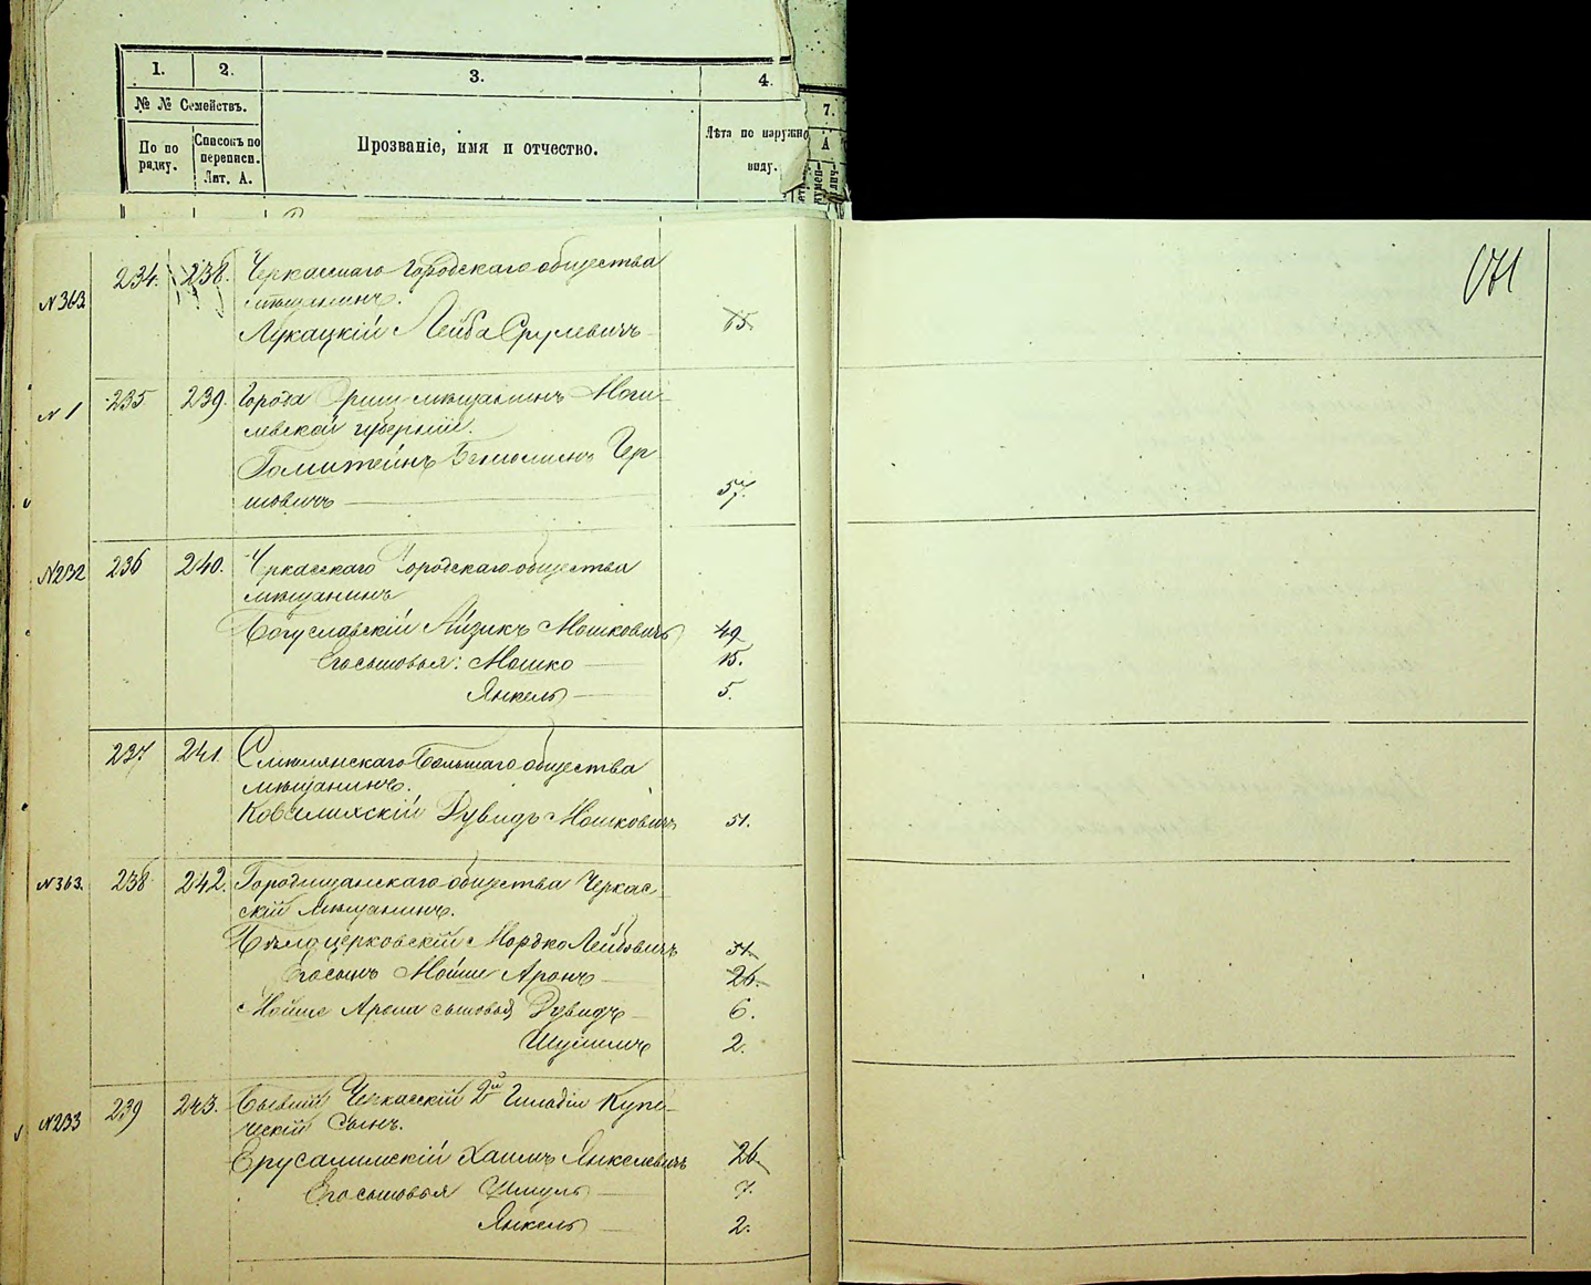 1. 2. 3. 4.
№ № Семействъ.
7.
А
По по рядку.
Списокъ по переписи. Лит. А.
Прозваніе, имя и отчество.
Лѣта по наружно виду.
171
N363 234. 238. Черкасскаго Городскаго общества
мѣщанинъ.
Лукацкій Лейба Срулевичъ 65.
N1 235 239. Города Орши мѣщанинъ Моги-
левской губерніи.
Голштейнъ Беньоминъ Гер
шовичъ 57.
N232 236 240. Черкасскаго Городскаго общества
мѣщанинъ
Богуславскій Айзикъ Мошковичъ 49
Его сыновья: Мошко 15.
Янкель 5.
237 241. Смѣлянскаго Большаго общества
мѣщанинъ.
Дувидъ Мошковичъ 51.
N363. 238 242. Городищанскаго общества Черкас-
скій мѣщанинъ.
Бѣлоцерковскій Мордко Лейбовичъ 51.
Его сынъ Мойше Аронъ 26.
Мойше Арона сыновья Дувидъ 6.
Шулимъ 2.
N233 239 243. Бывшій Черкасскій 2й Гильдіи Купе-
ческій Сынъ.
Ерусалимскій Хаимъ Янкелевичъ 26.
Его сыновья Шмуль 7.
Янкель 2.